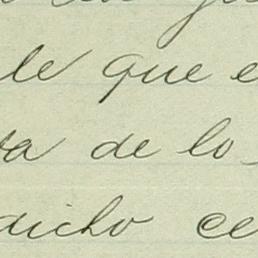 le que e
va de lo
dicho ce